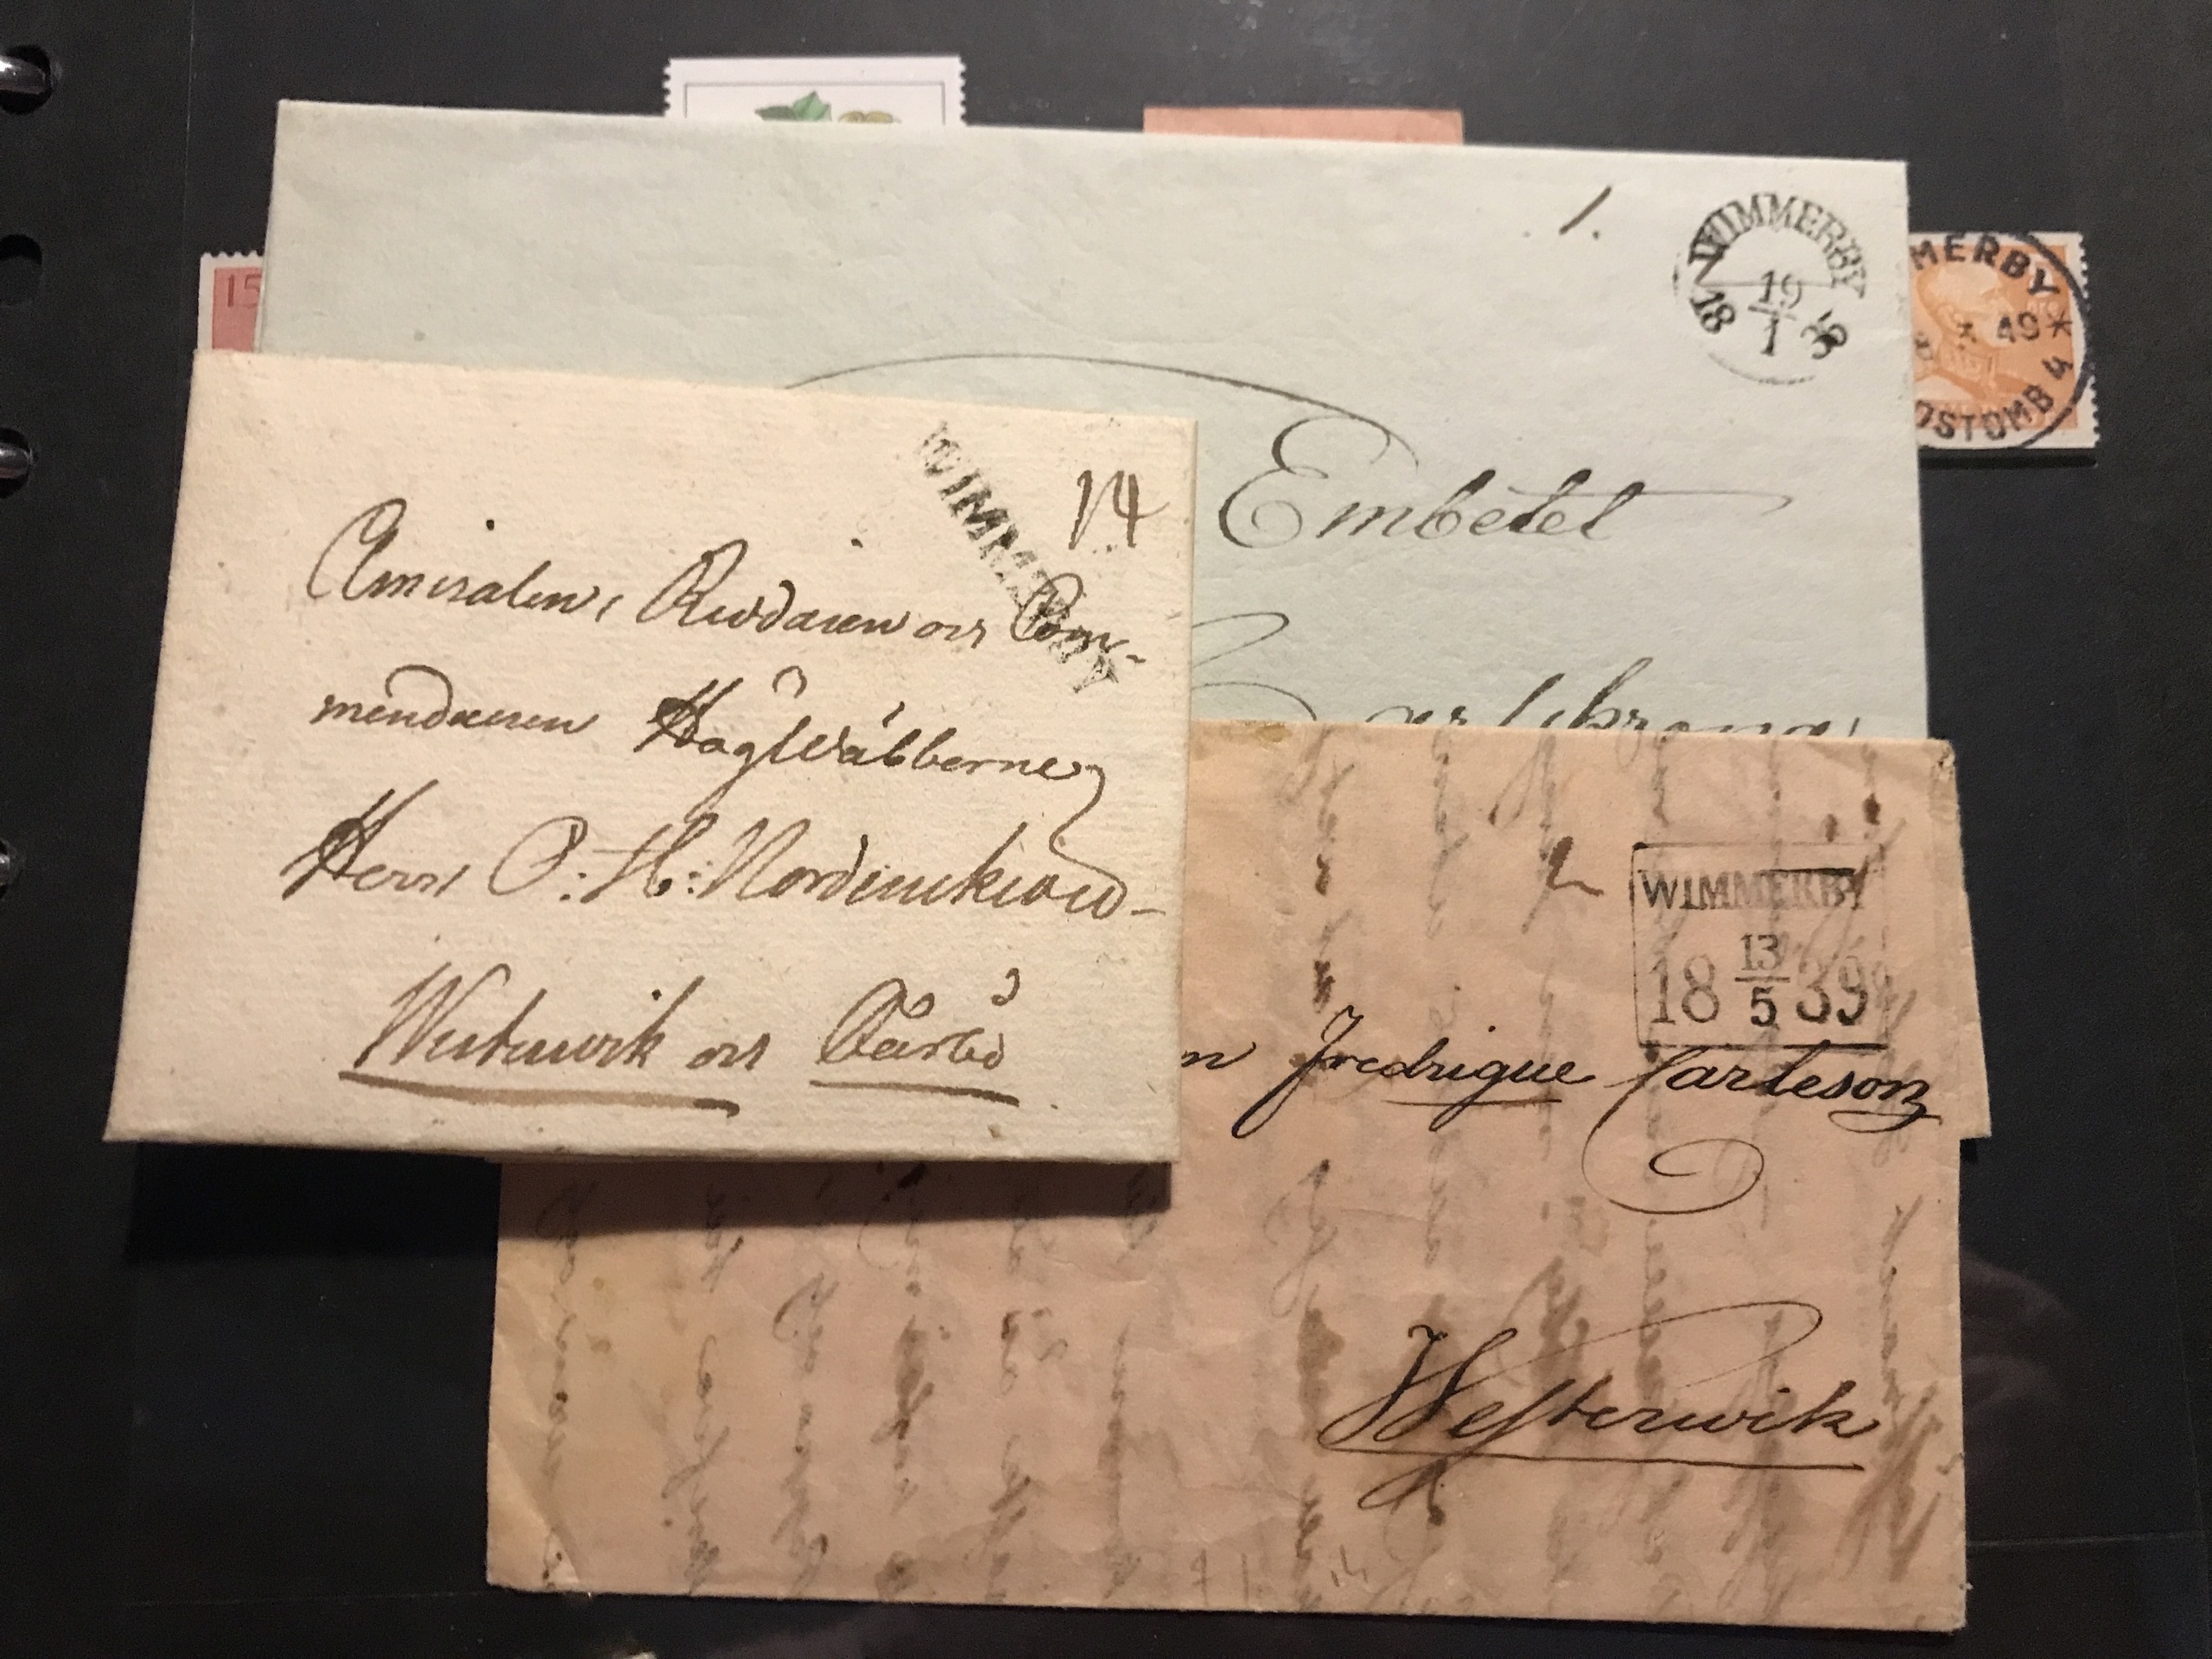 15
1.
WIMMERBY
19
18 1 38
MERBY
3 49 *
OSTOMB 4
Embetet
WIMMERBY
14
Amiralen, Riddaren och Com-
mendeuren HögWälborne
Herr C: H: Nordensköld
Westerwik och Fårbo
2
WIMMERBY
13
18 5 39
n Fredrique Carleson
Westerwik